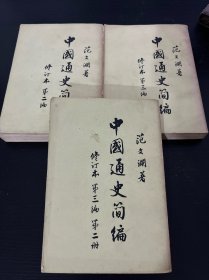 范文澜著
中國通史简编
修订本 第二编
范文澜著
中國通史简编
修订本 第一编
范文澜著
中國通史简编
修订本 第三编 第二册